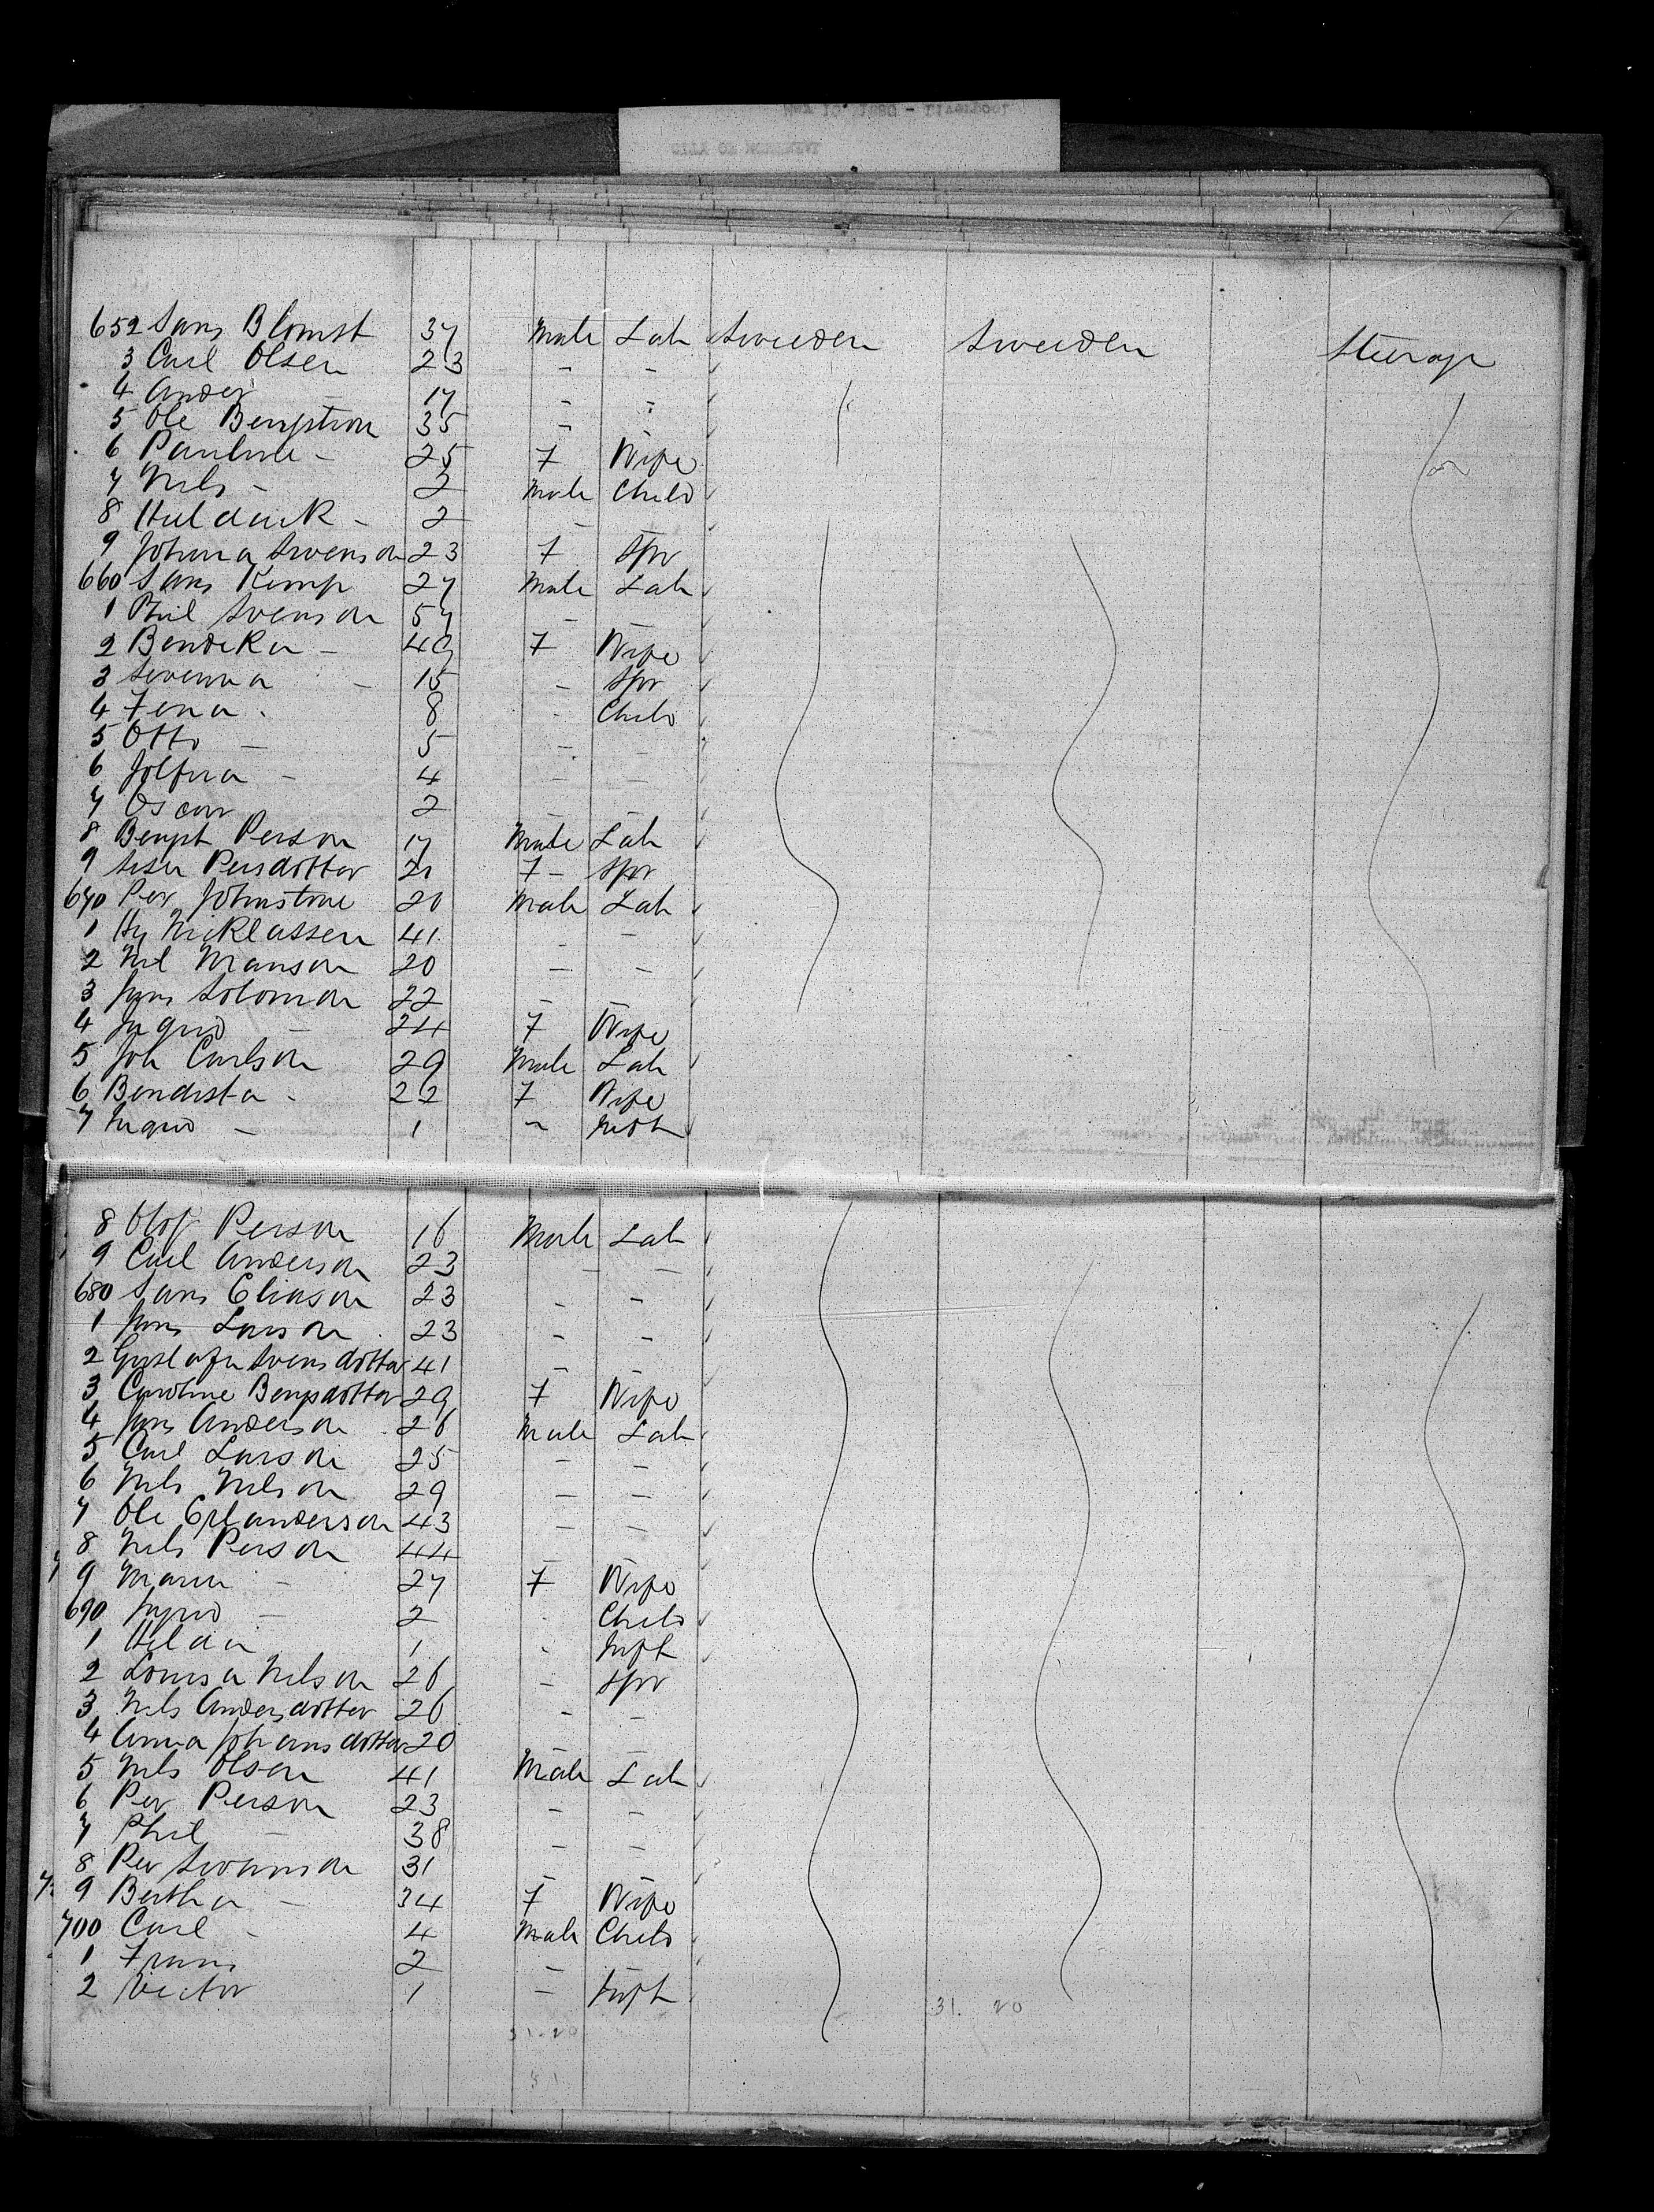 652 Sans Blomst 37 Male Lab Sweden Sweden Steerage
3 Carl Olsen 23 - -
4 Ander - 17 - -
5 Ole Bengtson 35 - -
6 Pauline - 25 F Wife
7 Nils - 2 Male Child
8 Huldarik - 2 - -
9 Johana Swenson 23 F Spr
660 Sans Kemp 27 Male Lab
1 Phil Svenson 57 - -
2 Bendeka - 49 F Wife
3 Swenna - 15 - Spr
4 Fena - 8 - Child
5 Otto - 5 - -
6 Jolfina - 4 - -
7 Oscar 2 - -
8 Bengt Person 17 Male Lab
9 Persdotter 21 F - Spr
670 Per Johnstone 20 Male Lab
1 Hy Nicklassen 41 - -
2 Nil Manson 20 - -
3 Jons Solomon 22 - -
4 Ingrid - 24 F Wife
5 Joh Carlson 29 Male Lab
6 Bendista - 22 F Wife
7 Ingrid - 1 - Inft
8 Olof Person 16 Male Lab
9 Carl Anderson 23 - -
680 Sans Eliason 23 - -
1 Jons Larson 23 - -
2 Gustafa Svensdotter 41 - -
3 Caroline Bengsdotter 29 F Wife
4 Jons Anderson 26 Male Lab
5 Carl Larson 25 - -
6 Nils Nilson 29 - -
7 Ole Erlanderson 43 - -
8 Nils Person 44 - -
9 Maria - 27 F Wife
690 Ingrid - 2 - Child
1 Hilda 1 - Inft
2 Louisa Nilson 26 - Spr
3 Nils Andersdotter 26 - -
4 Anna Johansdotter 20 - -
5 Nils Olson 41 Male Lab
6 Per Person 23 - -
7 Phil - 38 - -
8 Per Swanson 31 - -
9 Bertha - 34 F Wife
700 Carl - 4 Male Child
1 Frans 2 - -
2 Victor 1 - Inft
31. 20
31-20
31